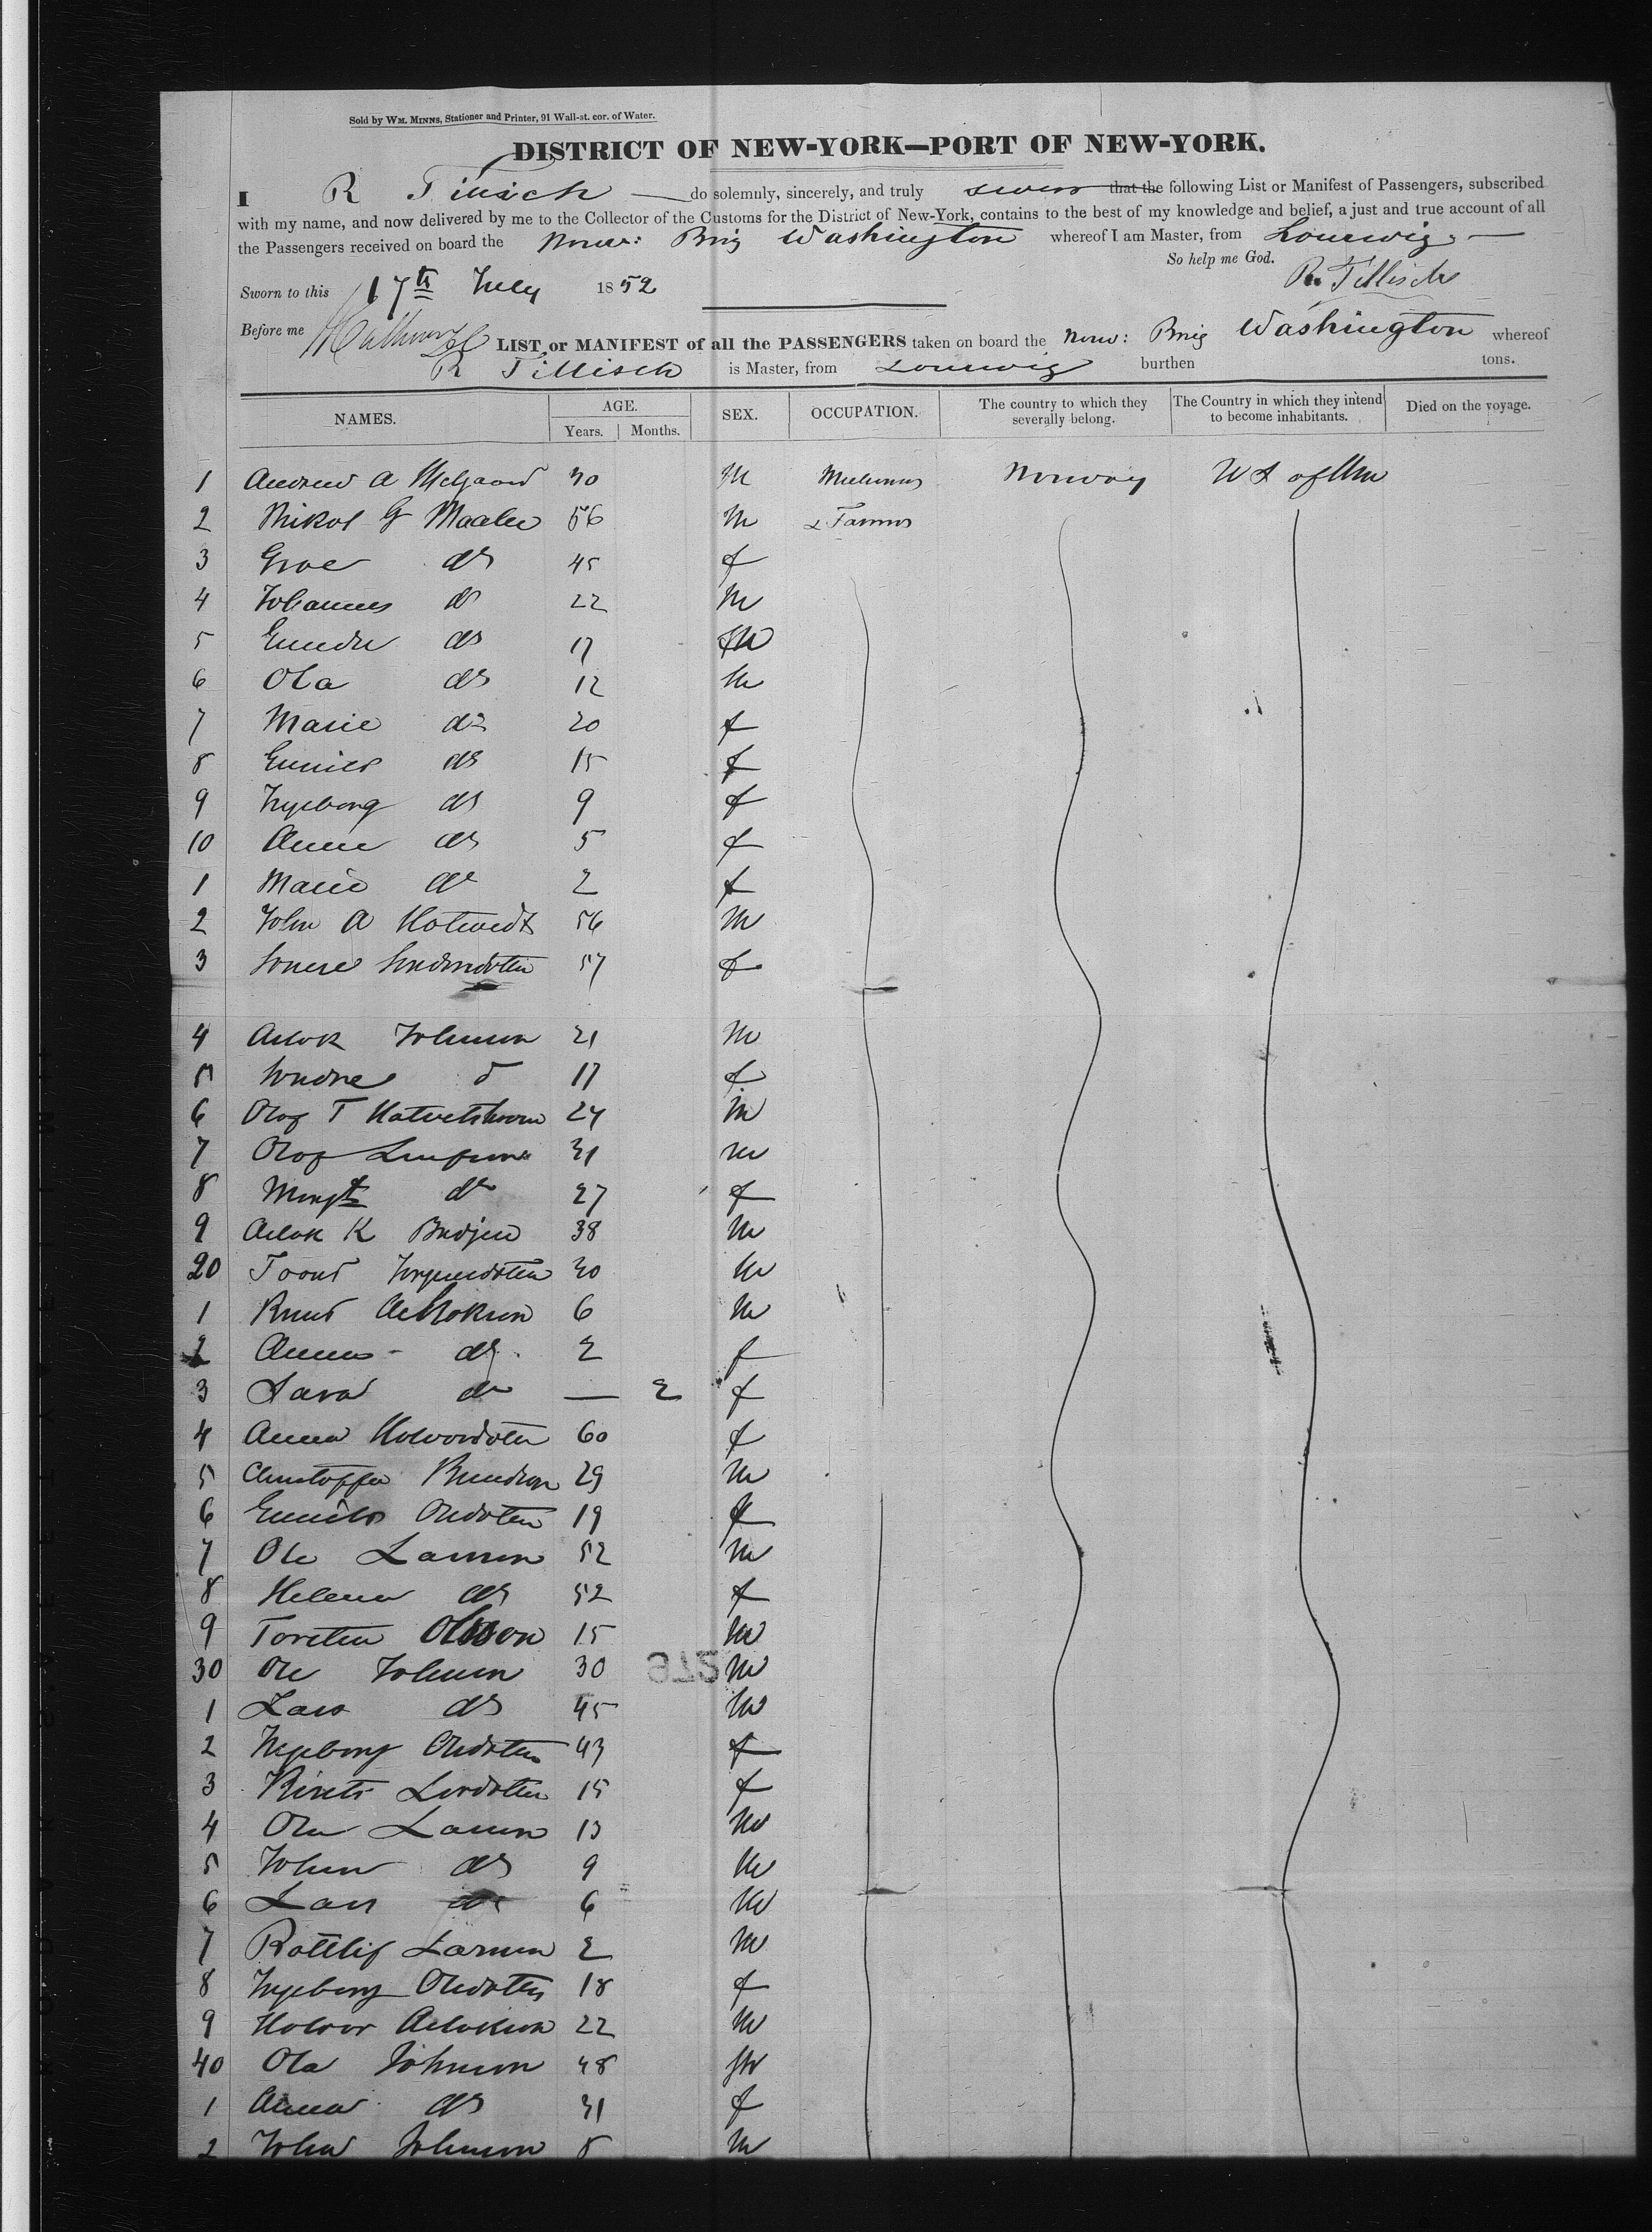 Sold by WM. MINNS, Stationer and Printer, 91 Wall-st. cor. of Water.
DISTRICT OF NEW-YORK—PORT OF NEW-YORK.
I R Tillisch do solemnly, sincerely, and truly swear that the following List or Manifest of Passengers, subscribed
with my name, and now delivered by me to the Collector of the Customs for the District of New-York, contains to the best of my knowledge and belief, a just and true account of all
the Passengers received on board the Norw: Brig Washington whereof I am Master, from Lourwig
So help me God.
Sworn to this 17th July 1852 R. Tillisch
Before me
LIST or MANIFEST of all the PASSENGERS taken on board the Norw: Brig Washington whereof
R Tillisch is Master, from Lourwig burthen tons.
NAMES. AGE. Years. Months. SEX. OCCUPATION. The country to which they severally belong. The Country in which they intend to become inhabitants. Died on the voyage.
1 Andrew A 30 M Norway U S of Am
2 Nikol G 56 M & Farmers
3 Groe do 45 f
4 Johannes do 22 M
5 do 17 M
6 Ola do 12 M
7 Marie do 20 f
8 do 15 f
9 Ingeborg do 9 f
10 Anne do 5 f
1 Marie do 2 f
2 John A 56 M
3 57 f
4 Aslok Johnson 21 M
5 Sondre d 17 f
6 Olog T 24 M
7 Olog 31 M
8 Margt do 27 f
9 Aslok K 38 M
20 30 M
1 Knud Aslokson 6 M
2 Anna do 2 f
3 Sara do — 2 f
4 Anna 60 f
5 Christoffer 29 M
6 Olsdotter 19 f
7 Ole Larsen 52 M
8 Helena do 52 f
9 Torsten Olsson 15 M
30 Ole Johnson 30 M
972
1 Lars do 45 M
2 Ingeborg Olsdotter 43 f
3 15 f
4 Ola Larson 13 M
5 John do 9 M
6 Lars do 6 M
7 Larsen 2 M
8 Ingeborg Olsdotter 18 f
9 Aslokson 22 M
40 Ola Johnson 48 M
1 Anna do 31 f
2 John Johnson 8 M